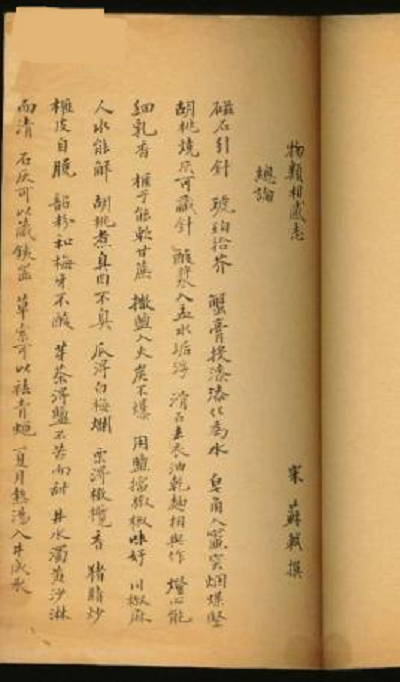 物類相感志
宋 蘇軾 撰
總論
磁石引針 琥珀拾芥 蟹膏投漆漆化為水 皂角入竈突烟煤墜
胡桃燒灰可藏針 酸漿入盂水垢浮 滑石去衣油乾麵相與作 燈心能
細乳香 榧子能軟甘蔗 撒鹽入火炭不爆 用鹽擂椒椒味好 川椒麻
人水能解 胡桃煮臭肉不臭 瓜得白梅爛 栗得橄欖香 猪脂炒
榧皮自脫 韶粉和梅牙不酸 芽茶得鹽不苦而甜 井水濁黃沙淋
而清 石灰可以藏鐵器 草索可以祛青蠅 夏月熱湯入井成氷